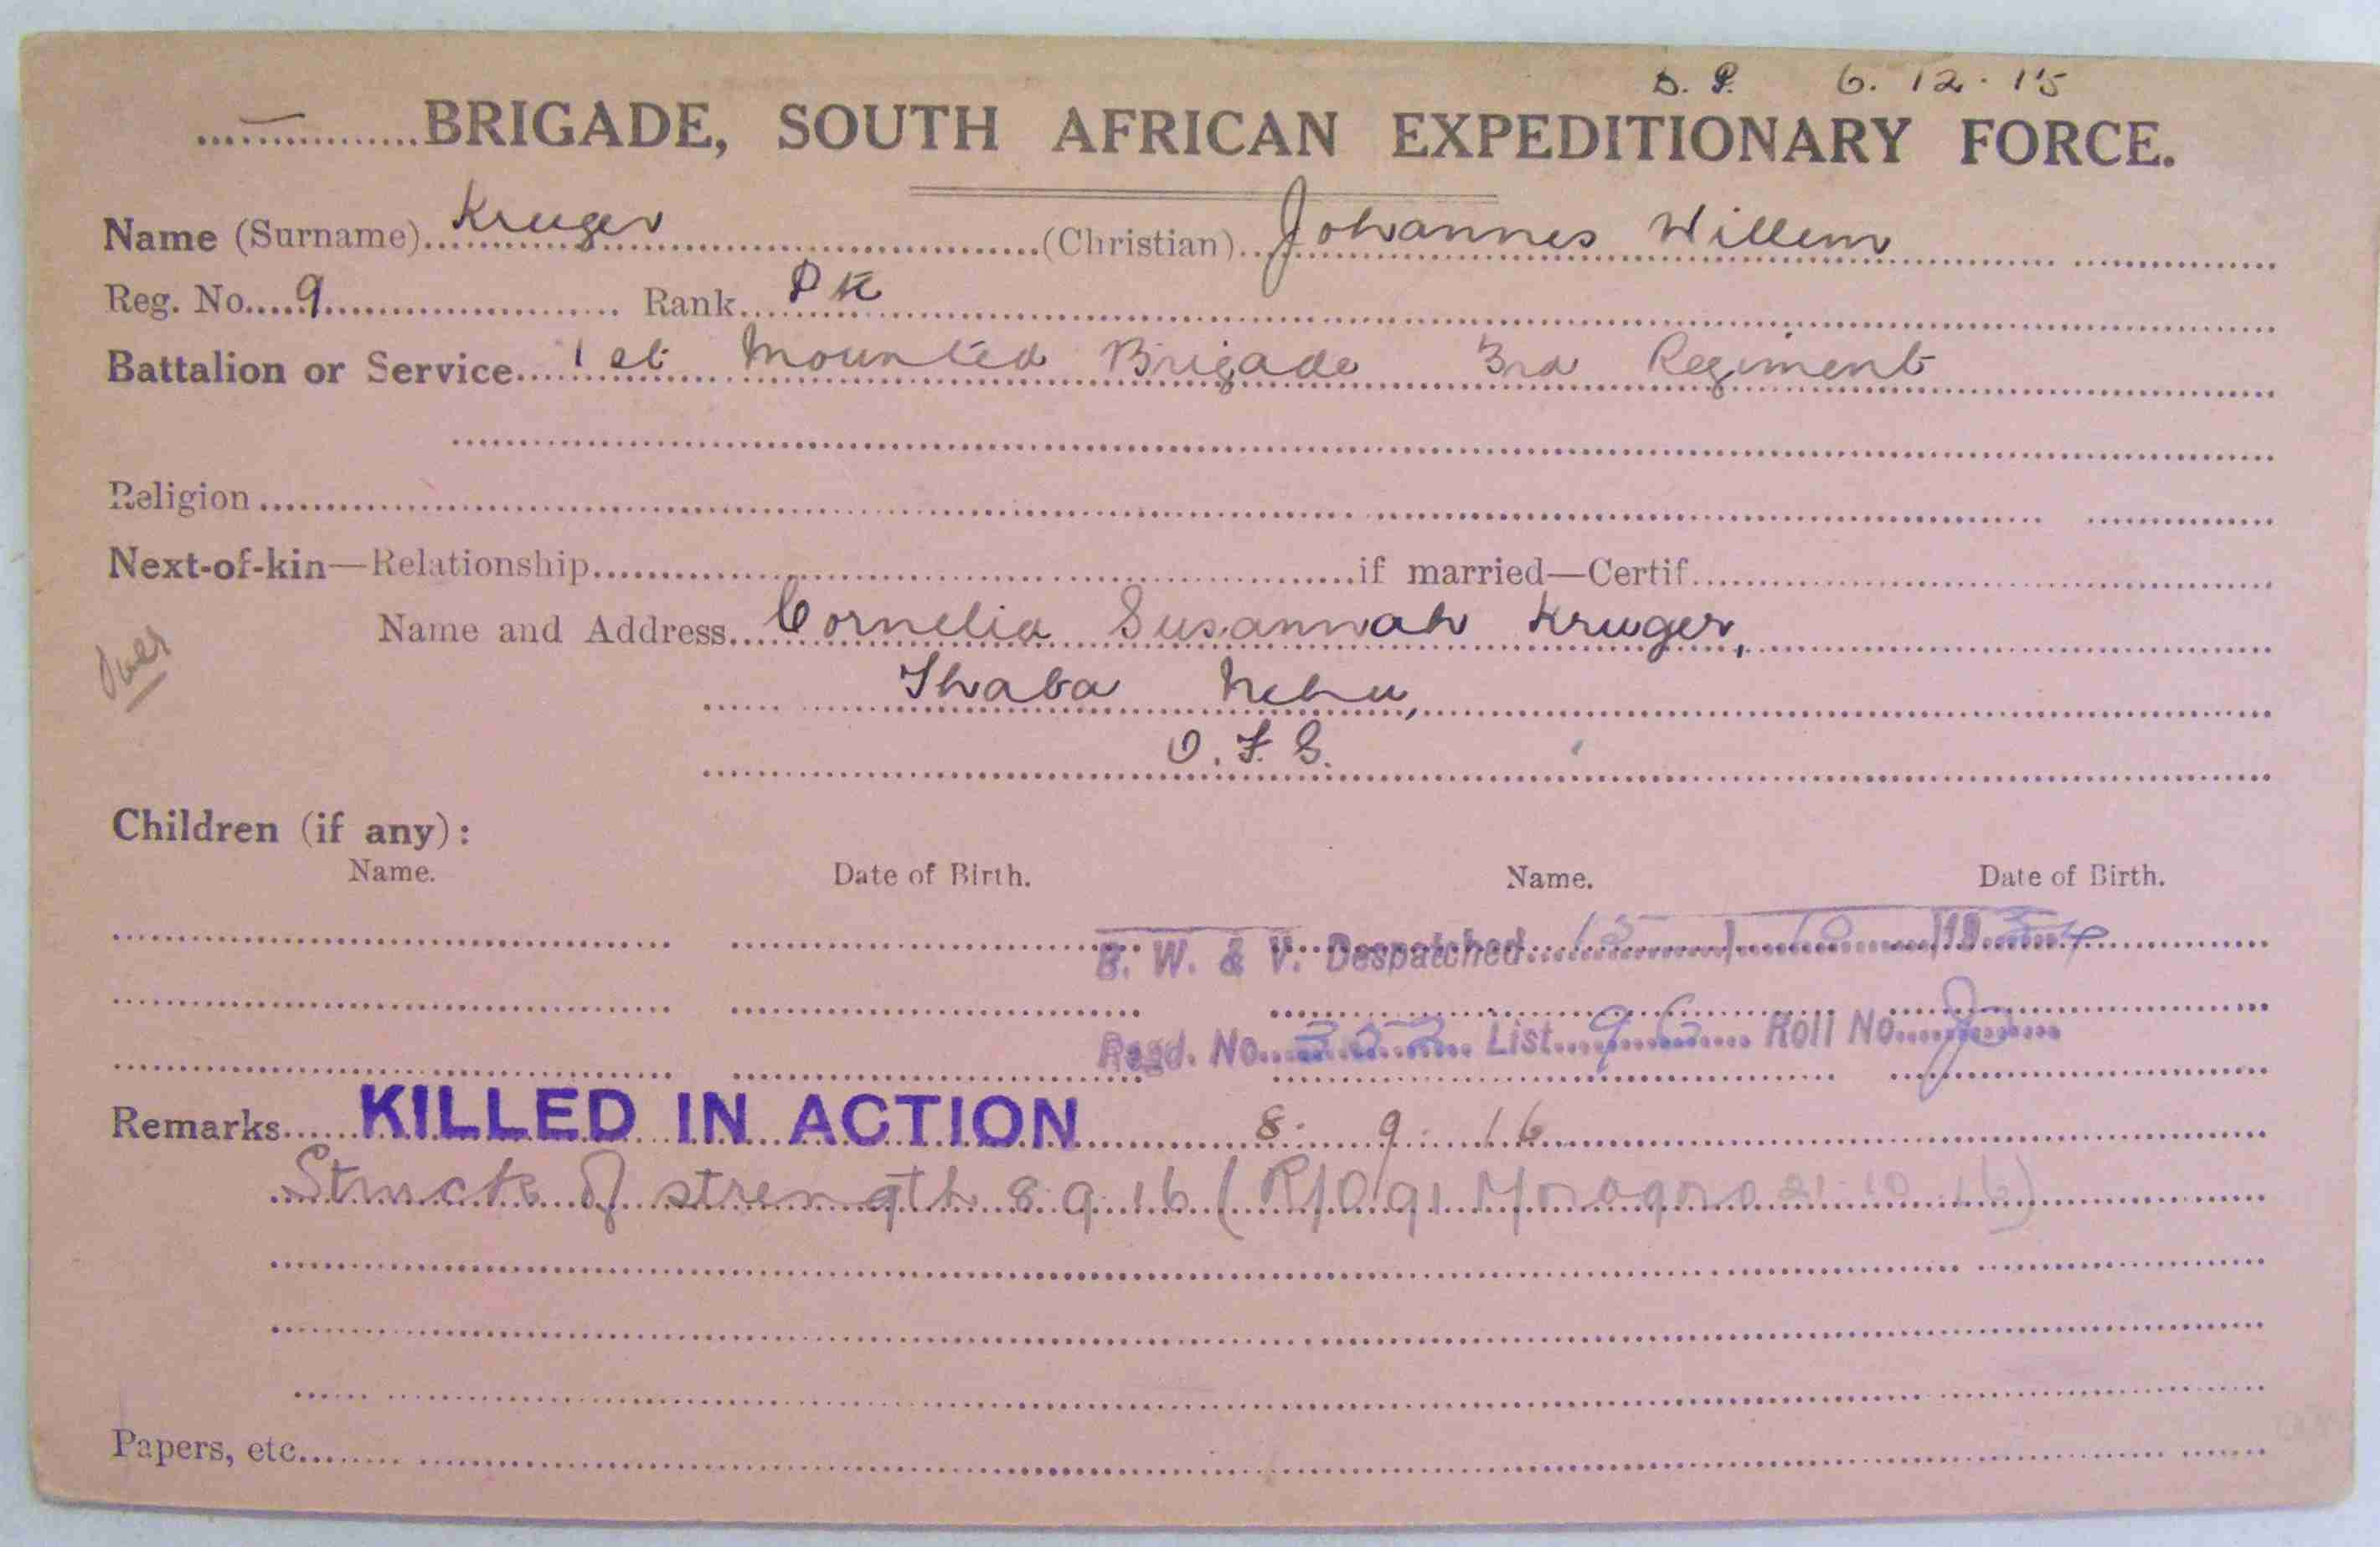 D. P. 6. 12. 15
BRIGADE, SOUTH AFRICAN EXPEDITIONARY FORCE.
Name (Surname) Kruger (Christian) Johannes Willem
Reg. No. 9 Rank
Battalion or Service 1st Mounted Brigade 3rd Regiment
Religion
Next-of-kin—Relationship if married—Certif.
Name and Address Cornelia Susannah Kruger,
Over
Thaba Nchu,
O. F. S.
Children (if any):
Name. Date of Birth. Name. Date of Birth.
B. W. & V. Despatched 15 / 10 /19
Regd. No. List 96 Roll No.
Remarks KILLED IN ACTION 8. 9. 16
Struck of strength 8.9.16 (R/O 91 Morogoro 21.10.16)
Papers, etc.